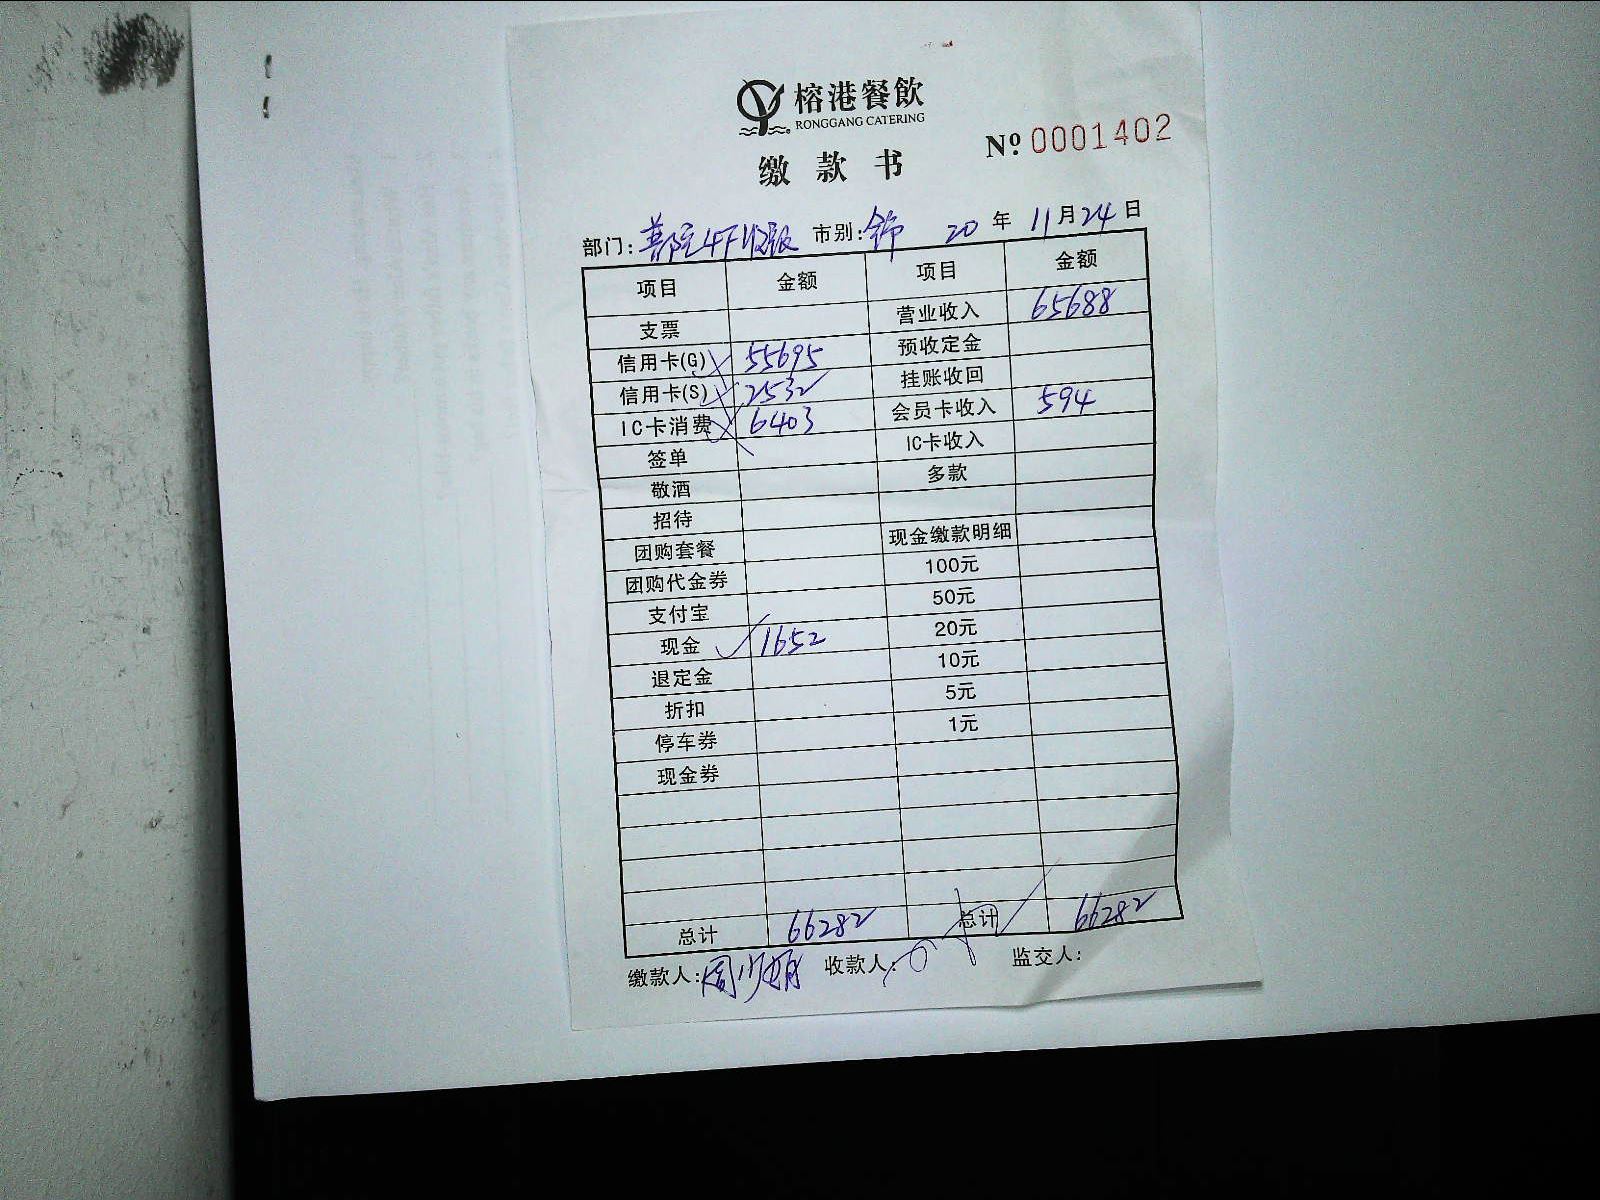 榕港餐飲
RONGGANG CATERING
缴款书
Nº 0001402
部门: 市别: 20 年 11月24日
项目 金额 项目 金额
支票 营业收入 65688
信用卡(G) 55695 预收定金
信用卡(S) 2532 挂账收回
IC卡消费 6403 会员卡收入 594
签单 IC卡收入
敬酒 多款
招待
团购套餐 现金缴款明细
团购代金券 100元
支付宝 50元
现金 1652 20元
退定金 10元
折扣 5元
停车券 1元
现金券
总计 66282 总计 66282
缴款人: 收款人: 监交人: